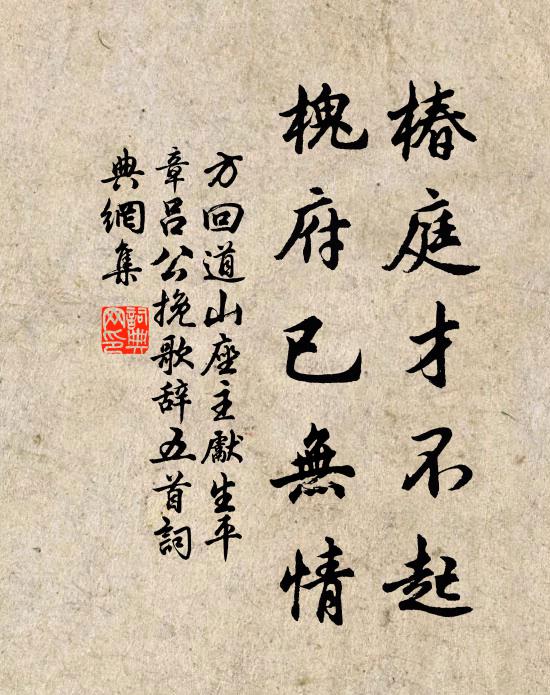 椿庭才不起
槐府已無情
方回道山座主獻生平
章吕公挽歌辞五首詞
典網集
詞典网印